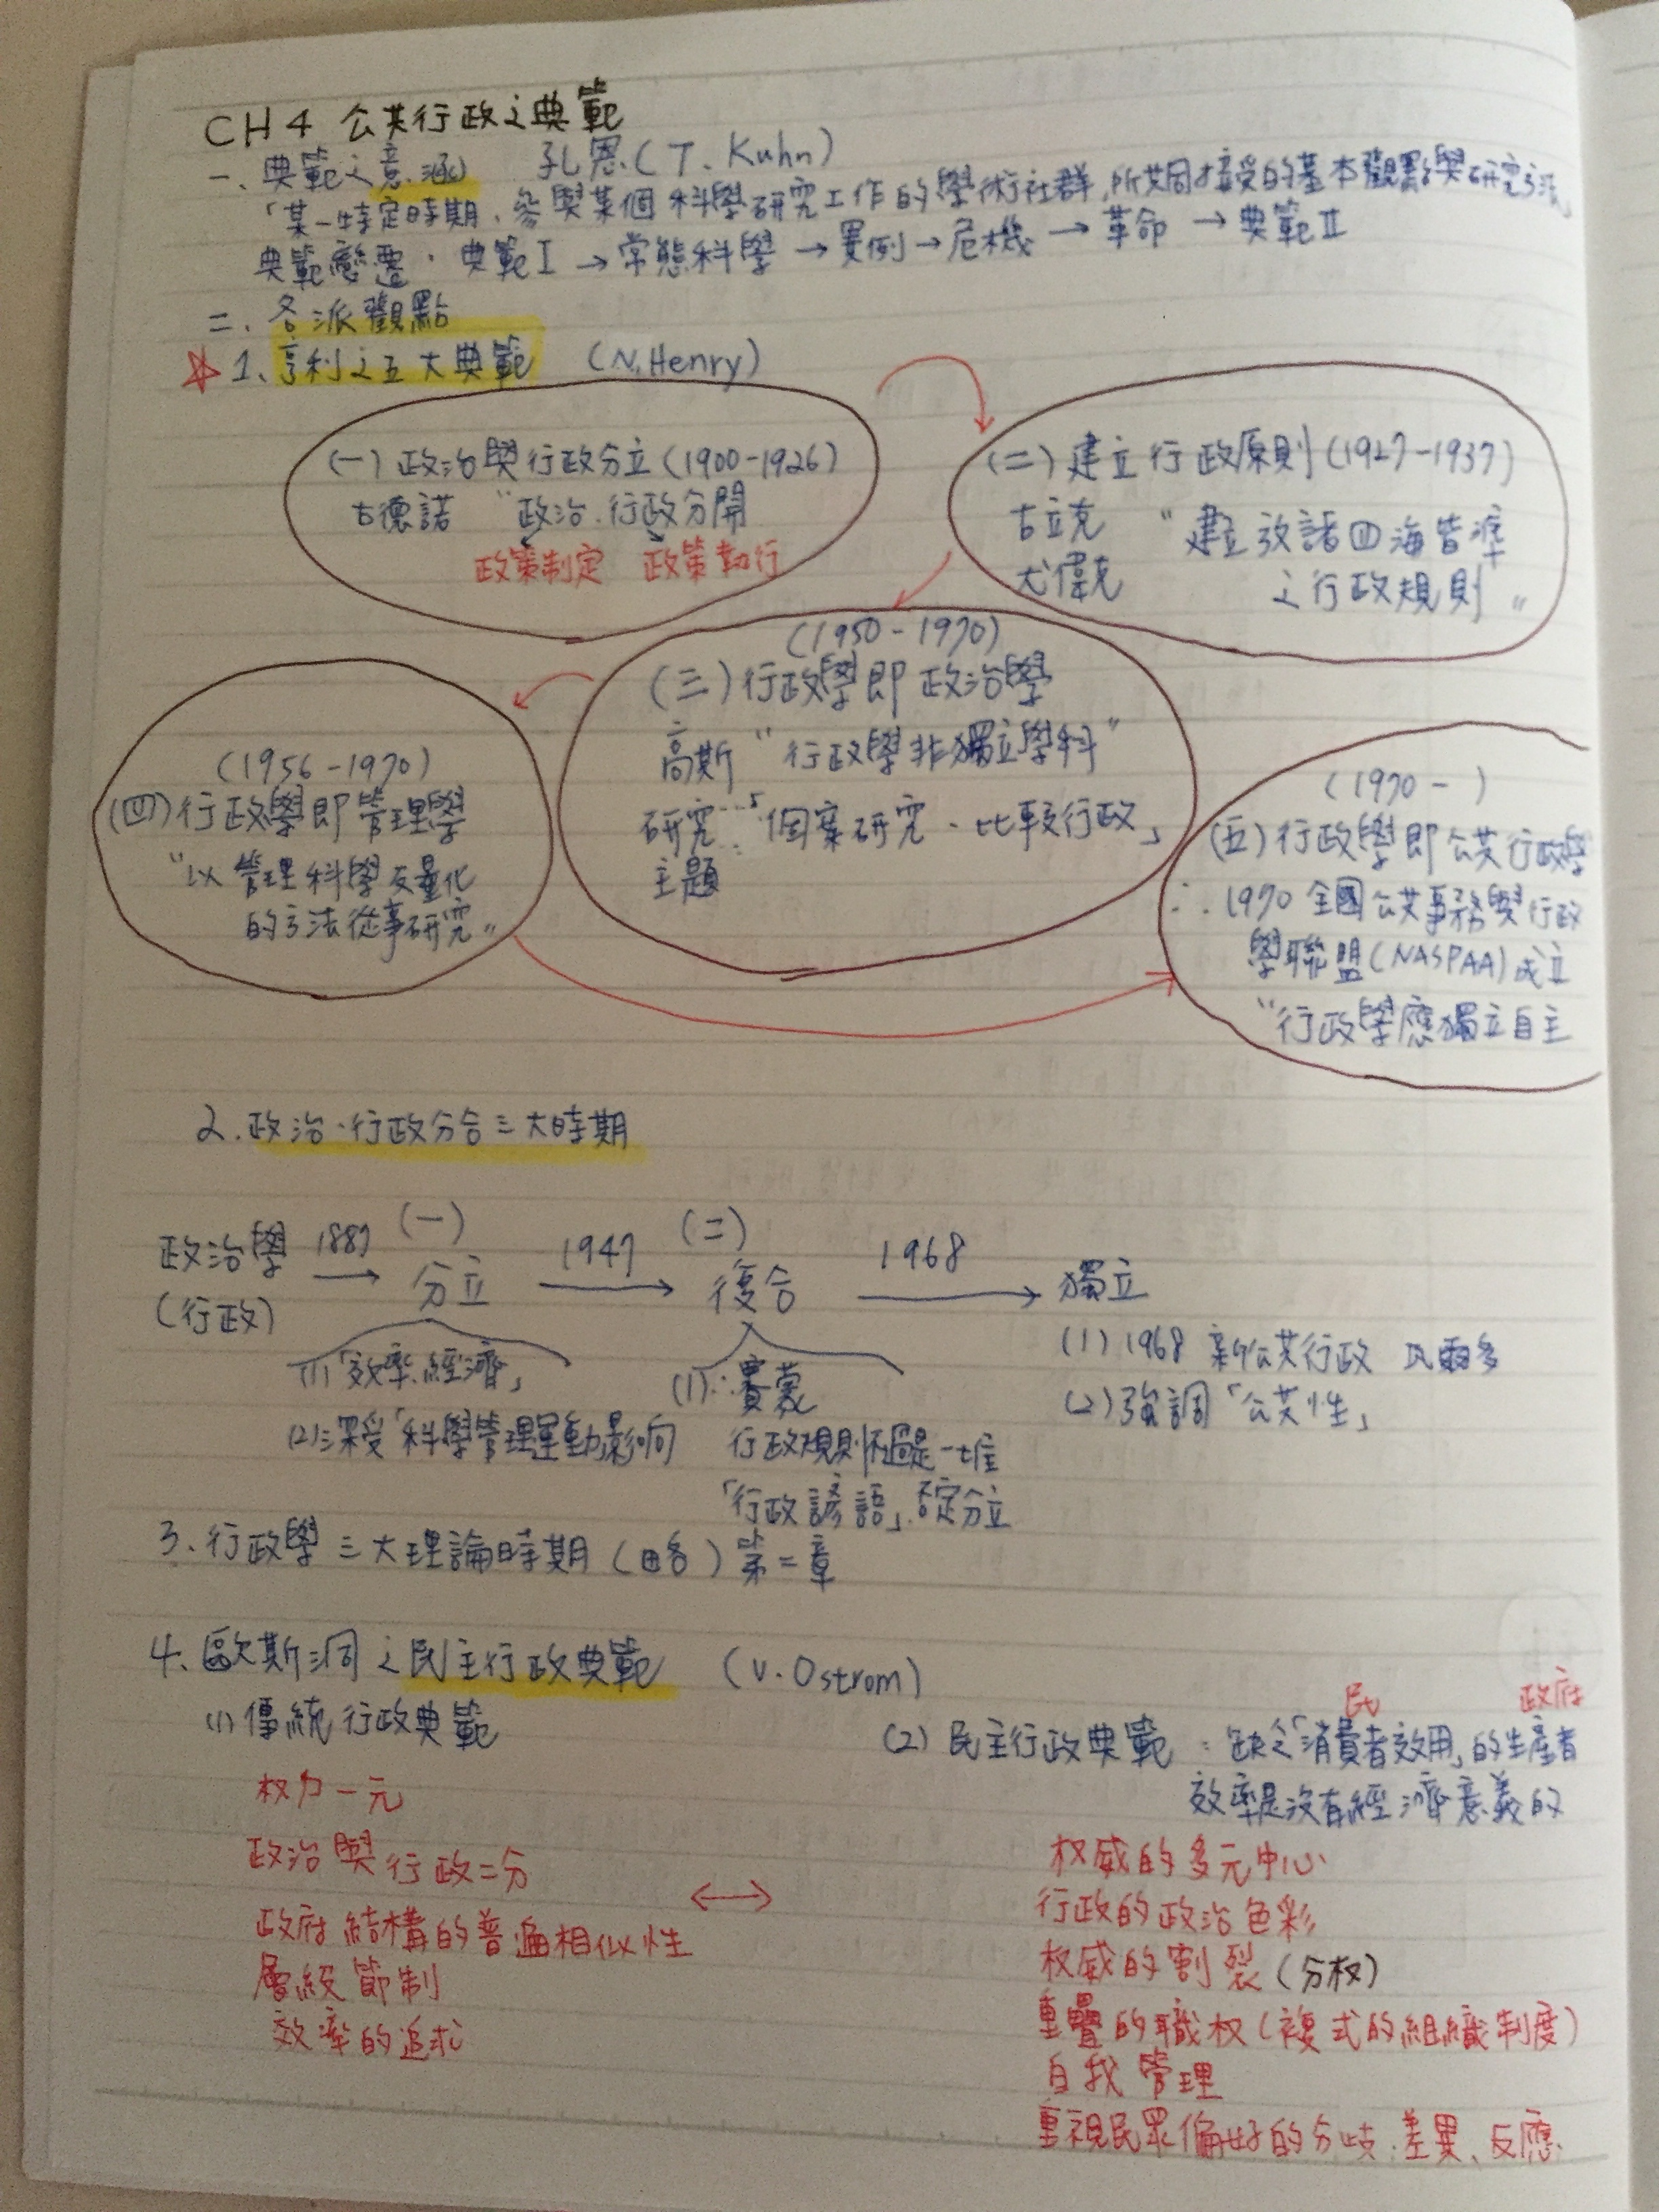 CH4 公共行政之典範
一、典範之意涵 孔恩(T. Kuhn)
「某一特定時期,參與某個科學研究工作的學術社群,所共同接受的基本觀點與研究方法」
典範變遷.典範I→常態科學→異例→危機→革命→典範II
二、各派觀點
☆1、亨利之五大典範 (N.Henry)
(一)政治與行政分立(1900-1926)
古德諾 "政治.行政分開
政策制定 政策執行
(二)建立行政原則(1927-1937)
古立克 "建立放諸四海皆準
尤偉克 之行政規則"
(1950-1970)
(三)行政學即政治學
高斯"行政學非獨立學科"
研究…「個案研究、比較行政」
主題
(1956-1970)
(四)行政學即管理學
"以管理科學及量化
的方法從事研究"
(1970- )
(五)行政學即公共行政學
∴1970全國公共事務與行政
學聯盟(NASPAA)成立
"行政學應獨立自主
2.政治.行政分合三大時期
(一) (二)
政治學 1887→ 分立 1947→ 復合 1968→ 獨立
(行政)
(1)「效率.經濟」
(2)深受「科學管理運動影响
(1)∵賽蒙
行政規則不過是一堆
「行政諺語」.否定分立
(1)1968新公共行政 瓦爾多
(2)強調「公共性」
3、行政學三大理論時期(略)第二章
4、歐斯洞之民主行政典範 (V.Ostrom)
(1)傳統行政典範
权力一元
政治與行政二分
政府結構的普遍相似性
層級節制
效率的追求
↔
民 政府
(2)民主行政典範:缺乏「消費者效用」的生產者
效率是沒有經濟意義的
权威的多元中心
行政的政治色彩
权威的割裂(分权)
重疊的職权(複式的組織制度)
自我管理
重視民眾偏好的分歧.差異、反應.